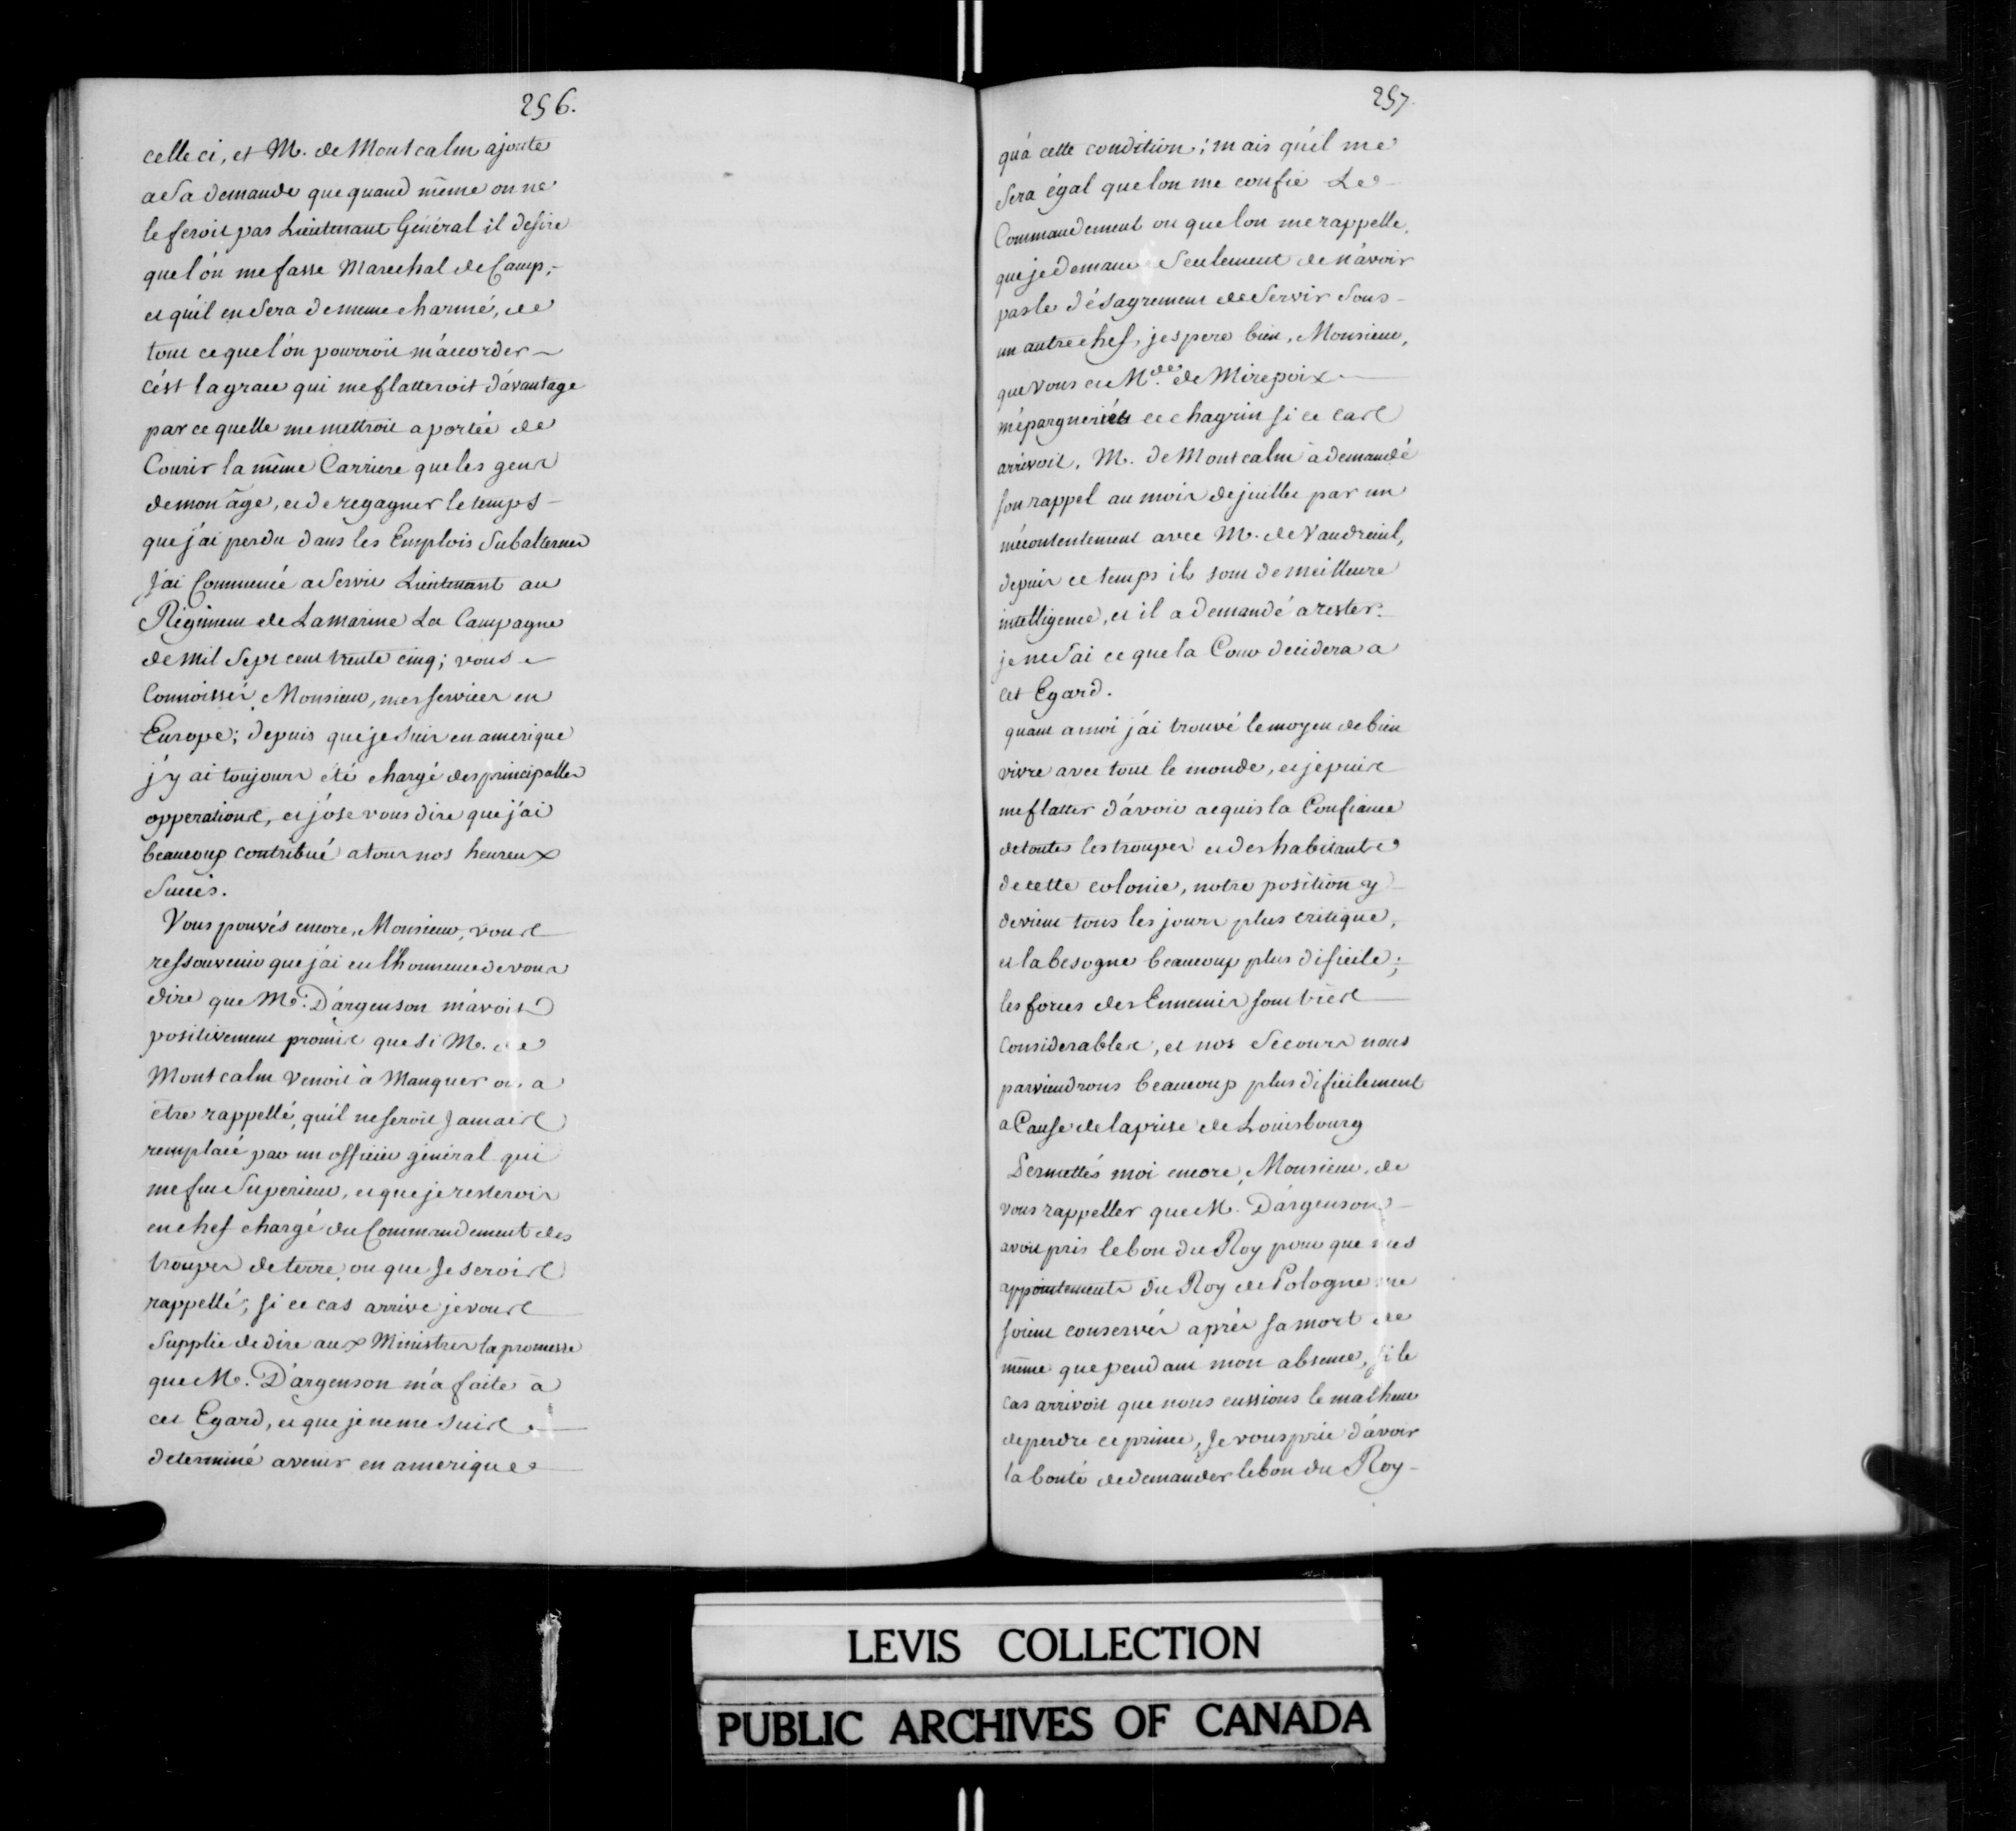 256.
celle ci, et M. de Montcalm ajoute
a Sa demande que quand même on ne
le feroit pas Lieutenant Général il desire
que l'on me fasse Marechal de Camp,
et qu'il en Sera de meme charmé, de
tout ce que l'on pourroit m'accorder
c'est la grace qui me flatteroit d'avantage
par ce quelle me mettroit a portée de
Courir la même Carriere que les gens
de mon âge, et de regagner le temps
que j'ai perdu dans les Emplois Subalternes
J'ai Commencé a Servir Lieutenant au
Régiment de Lamarine La Campagne
de mil Sept cent trente cinq; vous
Connoissés, Monsieur, mes services en
Europe; depuis que je suis en amerique
j'y ai toujours été chargé des principalles
opperations, et j'ose vous dire que j'ai
beaucoup contribué a tous nos heureux
Succès.
Vous pouvés encore, Monsieur, vous
ressouvenir que j'ai eu l'honneur de vous
dire que M. D'argenson m'avoit
positivement promis que Si M. de
Montcalm Venoit à Manquer ou a
être rappellé, qu'il ne seroit Jamais
remplacé par un officier général qui
me fut Superieur, et que je resterois
en chef chargé du Commandement des
troupes de terre, ou que Je serois
rappellé; Si ce cas arrive je vous
Supplie de dire aux Ministres la promesse
que M. D'argenson m'a faite à
cet Egard, et que je ne me suis
determiné a venir en amerique
257.
qu'à cette condition; mais qu'il me
Sera égal que lon me confie Le
Commandement ou que lon me rappelle,
que je demande Seulement de n'avoir
pas le désagrement de Servir Sous
un autre chef, j'espere bien, Monsieur,
que vous et Mde. de Mirepoix
m'épargneriés ce chagrin Si ce cas
arrivoit. M. de Montcalm a demandé
son rappel au mois de juillet par un
mécontentement avec M. de Vaudreuil,
depuis ce temps ils sont de meilleure
intelligence, et il a demandé a rester.
je ne Sai ce que la Cour decidera a
cet Egard.
quant a moi j'ai trouvé le moyen de bien
vivre avec tout le monde, et je puis
me flatter d'avoir acquis la Confiance
de toutes les troupes et des habitants
de cette colonie, notre position y
devient tous les jours plus critique,
et la besogne beaucoup plus dificile;
les forces des Ennemis sont très
Considerables, et nos Secours nous
parviendrons beaucoup plus dificilement
a Cause de la prise de Louisbourg
Permettés moi encore, Monsieur, de
vous rappeller que M. D'argenson
avoit pris le bon du Roy pour que mes
appointements du Roy de Pologne me
soient conservés après sa mort de
même que pendant mon absence, Si le
cas arrivoit que nous eussions le malheur
de perdre ce prince, Je vous prie d'avoir
la bonté de demander le bon du Roy
LEVIS COLLECTION
PUBLIC ARCHIVES OF CANADA